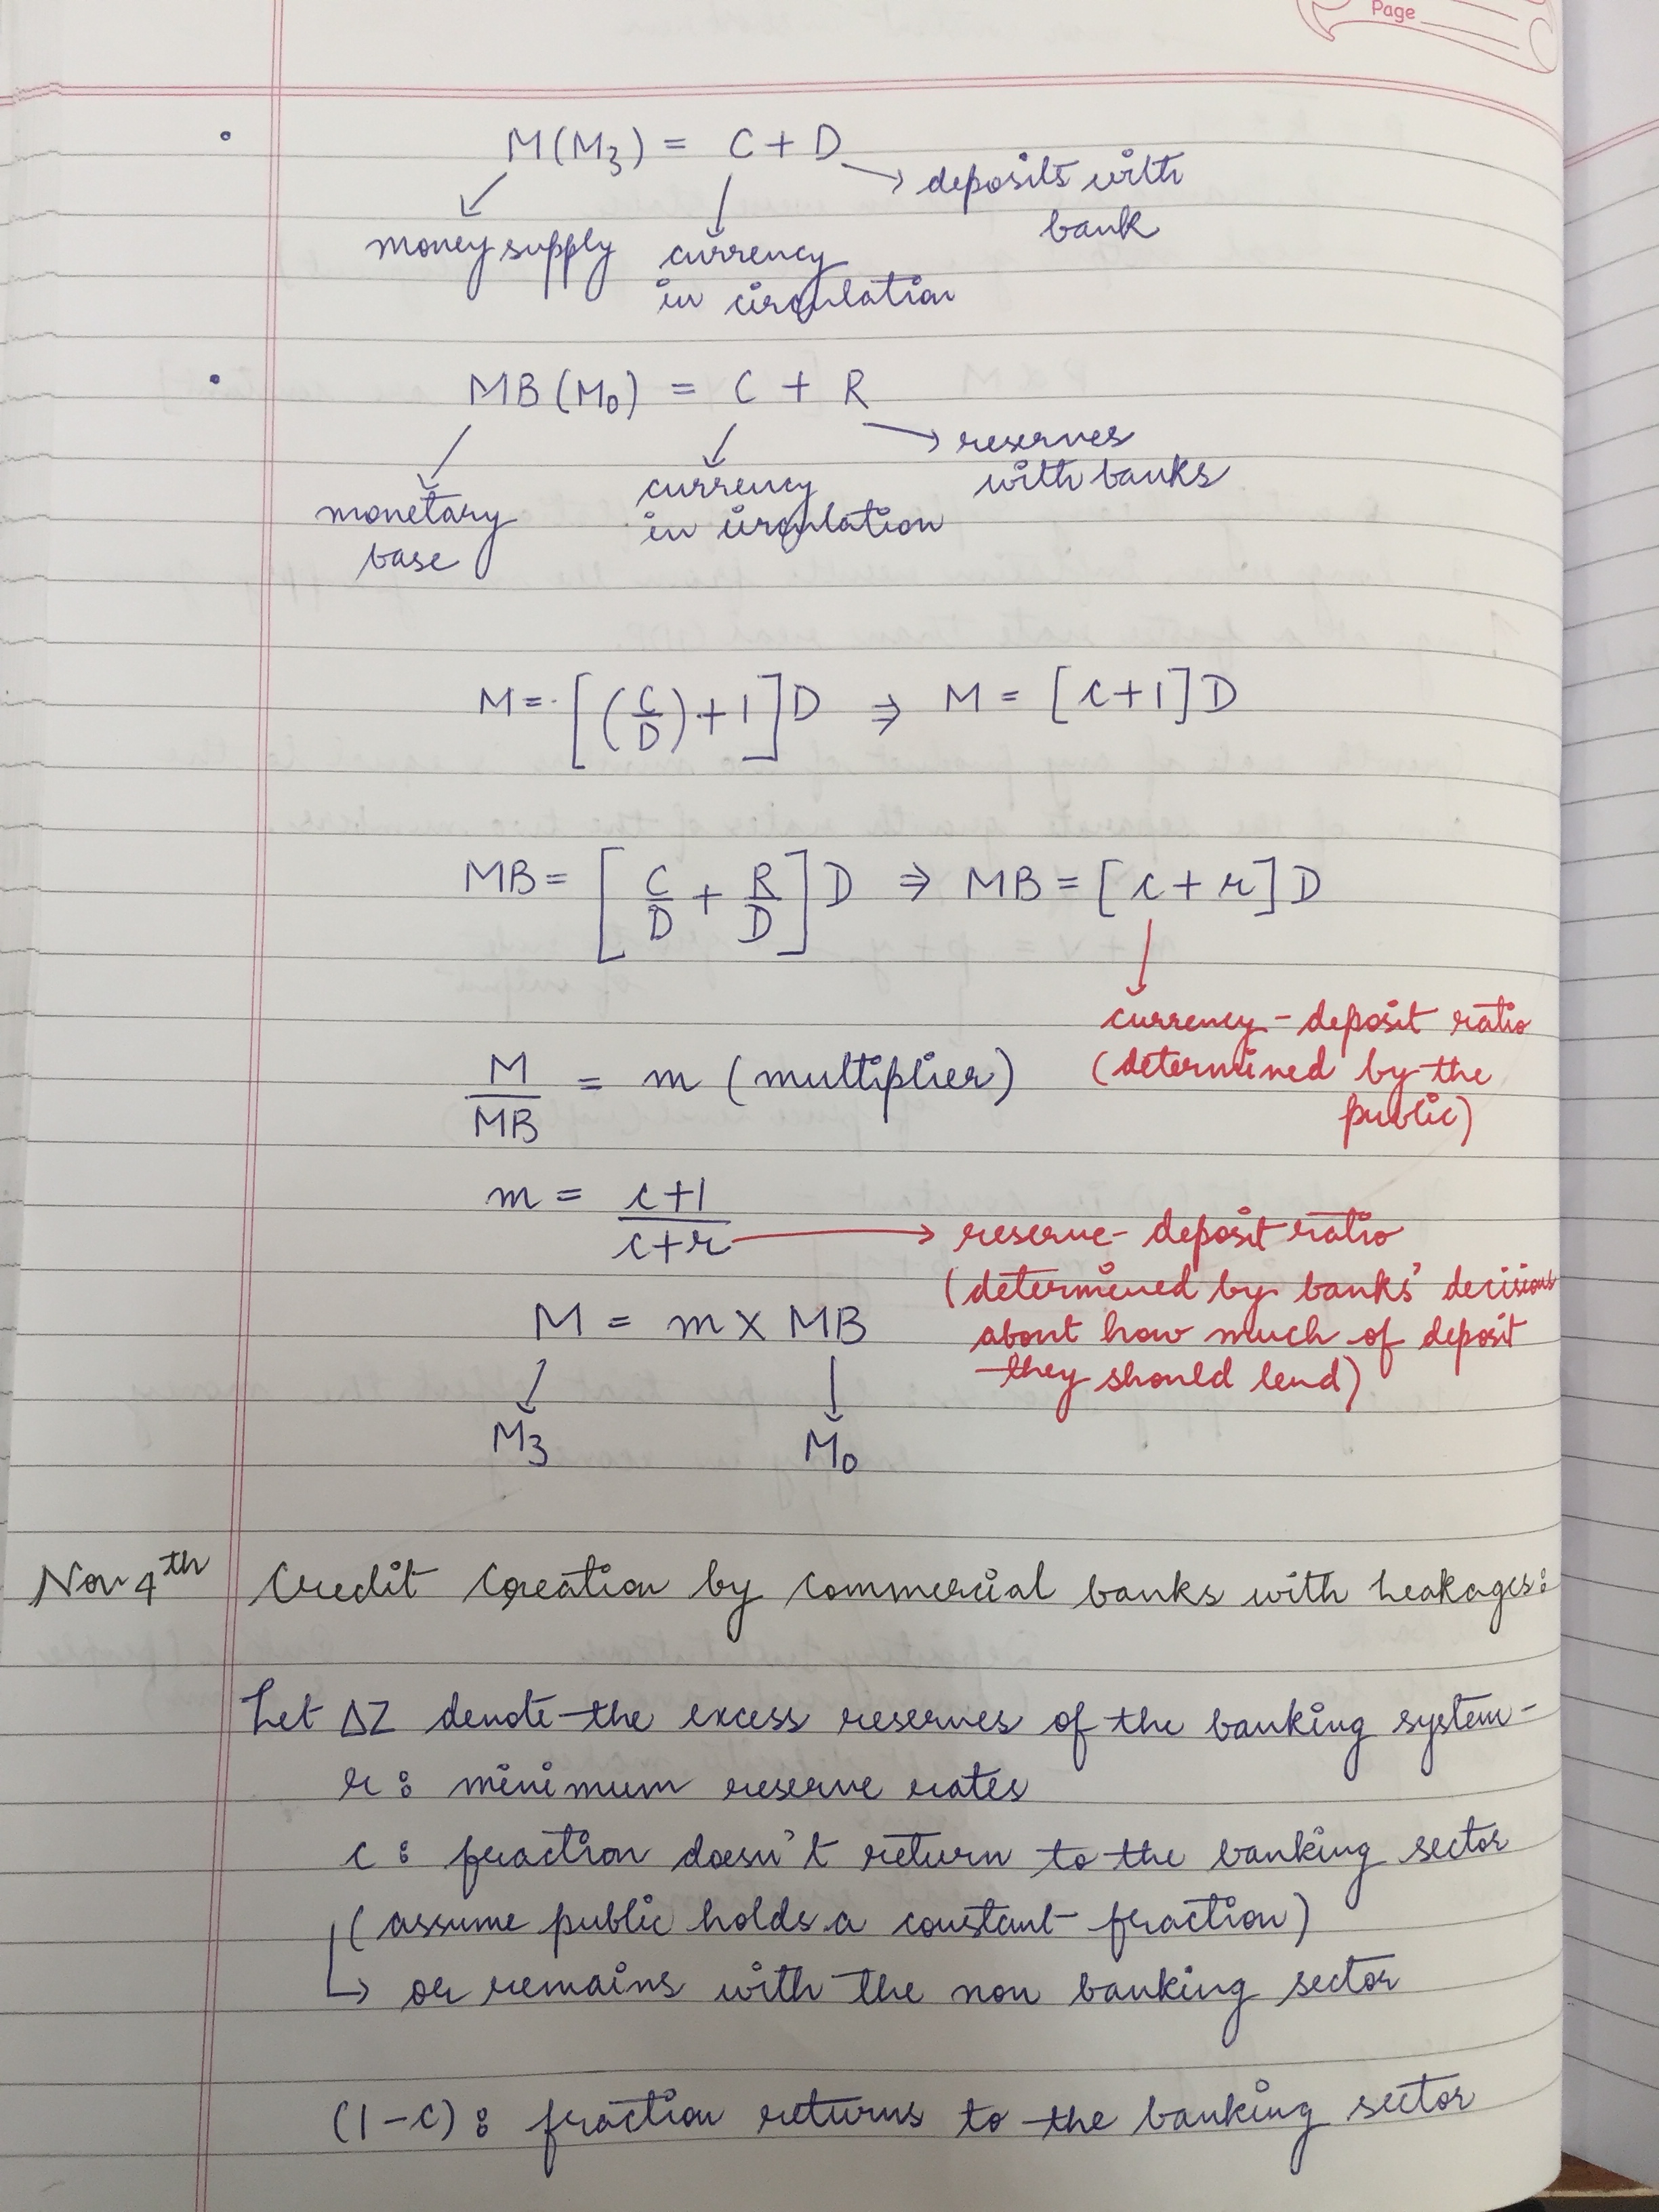 Page
• M(M₃) = C + D
deposits with
bank
money supply currency
in circulation
• MB(M₀) = C + R
reserves
with banks
currency
in circulation
monetary
base
M = [(C/D) + 1] D ⇒ M = [c+1] D
MB = [C/D + R/D] D ⇒ MB = [c + r] D
currency - deposit ratio
(determined by the
public)
M/MB = m (multiplier)
m = c+1/c+r
reserve - deposit ratio
(determined by banks' decisions
about how much of deposit
they should lend)
M = m × MB
M₃ M₀
Nov 4th Credit Creation by commercial banks with leakages:
Let ΔZ denote the excess reserves of the banking system -
r : minimum reserve rates
c : fraction doesn't return to the banking sector
(assume public holds a constant fraction)
↳ or remains with the non banking sector
(1-c) : fraction returns to the banking sector